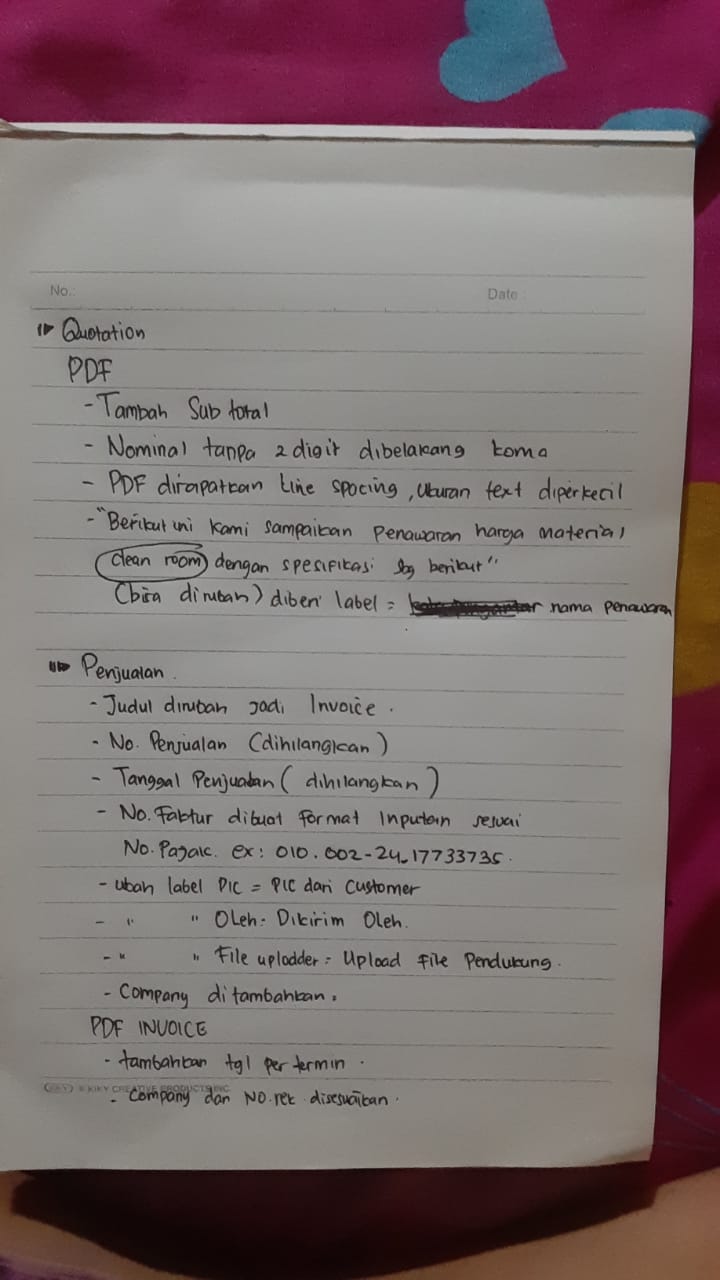 No.:
Date :
Quotation
PDF
- Tambah Sub total
- Nominal tanpa 2 digit dibelakang koma
- PDF dirapatkan Line spacing, Ukuran text diperkecil
- "Berikut ini kami sampaikan penawaran harga material
clean room dengan spesifikasi sbg berikut"
(bisa dirubah) diberi label = nama penawaran
Penjualan.
- Judul dirubah jadi Invoice.
- No. Penjualan (dihilangkan)
- Tanggal Penjualan (dihilangkan)
- No. Faktur dibuat format Inputan sesuai
No. Pajak. ex: 010.002-24.17733735.
- ubah label PIC = PIC dari Customer
- " " OLeh = Dikirim OLeh.
- " " File uplodder = Upload File Pendukung.
- Company ditambahkan.
PDF INVOICE
- tambahkan tgl per termin.
KIKY CREATIVE PRODUCTS INC.
- Company dan NO.rek disesuaikan.